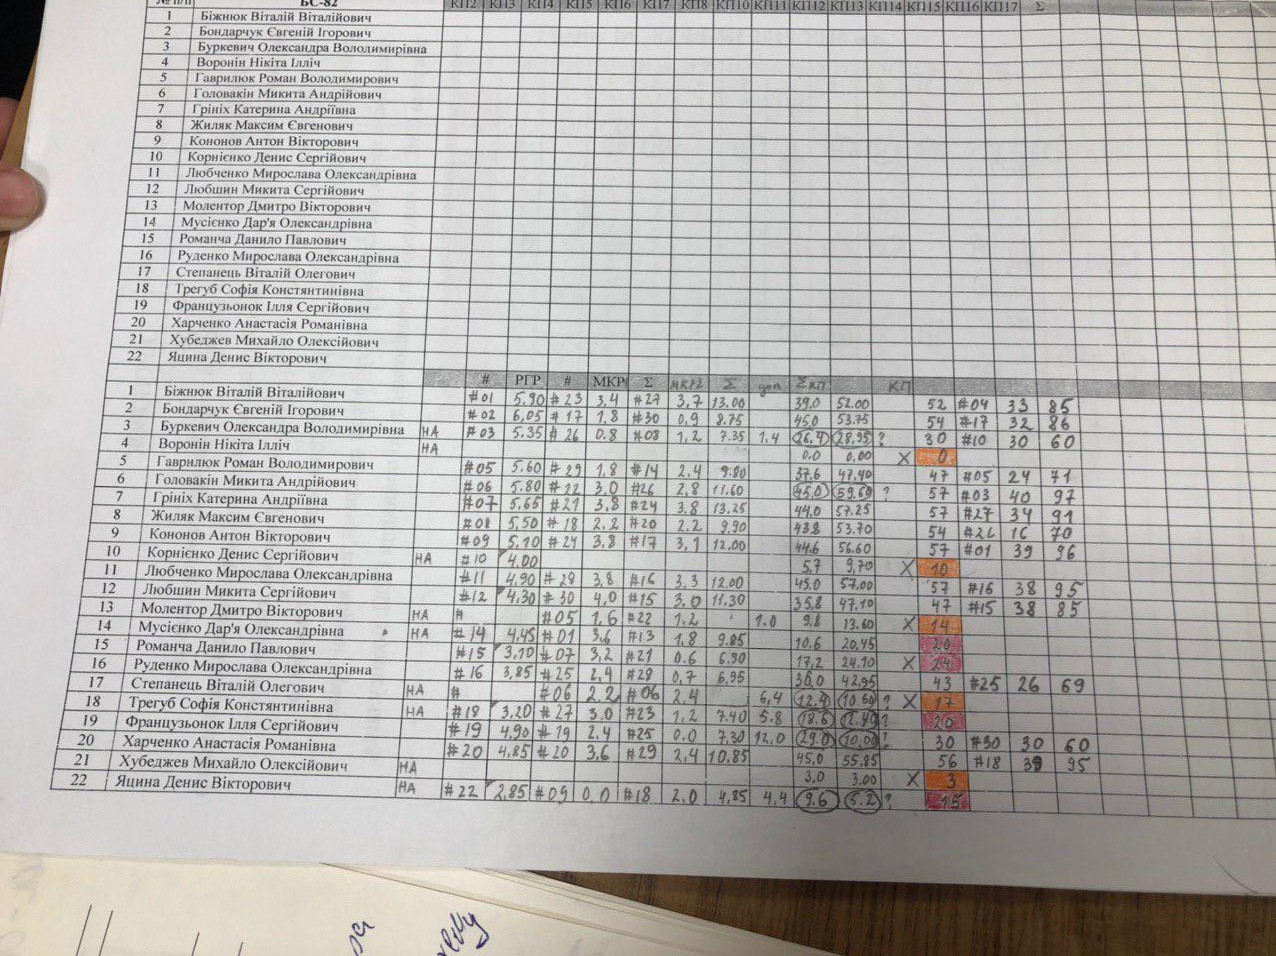 № п/п БС-82 КП2 КП3 КП4 КП5 КП6 КП7 КП8 КП10 КП11 КП12 КП13 КП14 КП15 КП16 КП17 Σ
1 Біжнюк Віталій Віталійович
2 Бондарчук Євгеній Ігорович
3 Буркевич Олександра Володимирівна
4 Воронін Нікіта Ілліч
5 Гаврилюк Роман Володимирович
6 Головакін Микита Андрійович
7 Грініх Катерина Андріївна
8 Жиляк Максим Євгенович
9 Кононов Антон Вікторович
10 Корнієнко Денис Сергійович
11 Любченко Мирослава Олександрівна
12 Любшин Микита Сергійович
13 Молентор Дмитро Вікторович
14 Мусієнко Дар'я Олександрівна
15 Романча Данило Павлович
16 Руденко Мирослава Олександрівна
17 Степанець Віталій Олегович
18 Трегуб Софія Констянтинівна
19 Французьонок Ілля Сергійович
20 Харченко Анастасія Романівна
21 Хубеджев Михайло Олексійович
22 Яцина Денис Вікторович
# РГР # МКР Σ МКР2 Σ доп Σ КП КП
1 Біжнюк Віталій Віталійович #01 5.90 #23 3,4 #27 3,7 13.00 39.0 52.00 52 #04 33 85
2 Бондарчук Євгеній Ігорович #02 6,05 #17 1,8 #30 0,9 8.75 45.0 53.75 54 #17 32 86
3 Буркевич Олександра Володимирівна НА #03 5.35 #26 0.8 #08 1,2 7.35 1,4 26.7 28.95 ? 30 #10 30 60
4 Воронін Нікіта Ілліч НА 0.0 0.00 X 0
5 Гаврилюк Роман Володимирович #05 5.60 #29 1,8 #14 2,4 9.80 37.6 47.40 47 #05 24 71
6 Головакін Микита Андрійович #06 5.80 #22 3,0 #26 2,8 11.60 45.0 59.60 ? 57 #03 40 97
7 Грініх Катерина Андріївна #07 5.65 #21 3,8 #24 3.8 13.25 44.0 57.25 57 #27 34 91
8 Жиляк Максим Євгенович #08 5,50 #18 2,2 #20 2,2 9,90 43.8 53.70 54 #26 16 70
9 Кононов Антон Вікторович #09 5,10 #24 3,8 #17 3,1 12.00 44.6 56.60 57 #01 39 96
10 Корнієнко Денис Сергійович НА #10 4.00 5.7 9,70 X 10
11 Любченко Мирослава Олександрівна #11 4,90 #28 3,8 #16 3,3 12.00 45.0 57.00 57 #16 38 95
12 Любшин Микита Сергійович #12 4,30 #30 4,0 #15 3.0 11.30 35.8 47.10 47 #15 38 85
13 Молентор Дмитро Вікторович НА # #05 1,6 #22 1.2 1.0 9.8 13.60 X 14
14 Мусієнко Дар'я Олександрівна НА #14 4,45 #01 3,6 #13 1,8 9.85 10.6 20,45 20
15 Романча Данило Павлович #15 3,10 #07 3,2 #21 0.6 6.90 17,2 24.10 X 24
16 Руденко Мирослава Олександрівна #16 3,85 #25 2,4 #28 0,7 6,95 36,0 42,95 43 #25 26 69
17 Степанець Віталій Олегович НА # #06 2.2 #06 2.4 6,4 12.4 10.60 ? X 17
18 Трегуб Софія Констянтинівна НА #18 3,20 #27 3.0 #23 1,2 7.40 5.8 18.6 2.40 ? 20
19 Французьонок Ілля Сергійович #19 4,90 #19 2,4 #25 0.0 7,30 12,0 29.0 10,00 ? 30 #30 30 60
20 Харченко Анастасія Романівна #20 4,85 #20 3,6 #29 2,4 10,85 45,0 55,85 56 #18 39 95
21 Хубеджев Михайло Олексійович НА 3,0 3.00 X 3
22 Яцина Денис Вікторович НА #22 2,85 #09 0,0 #18 2,0 4,85 4,4 9.6 5.2 ? 15